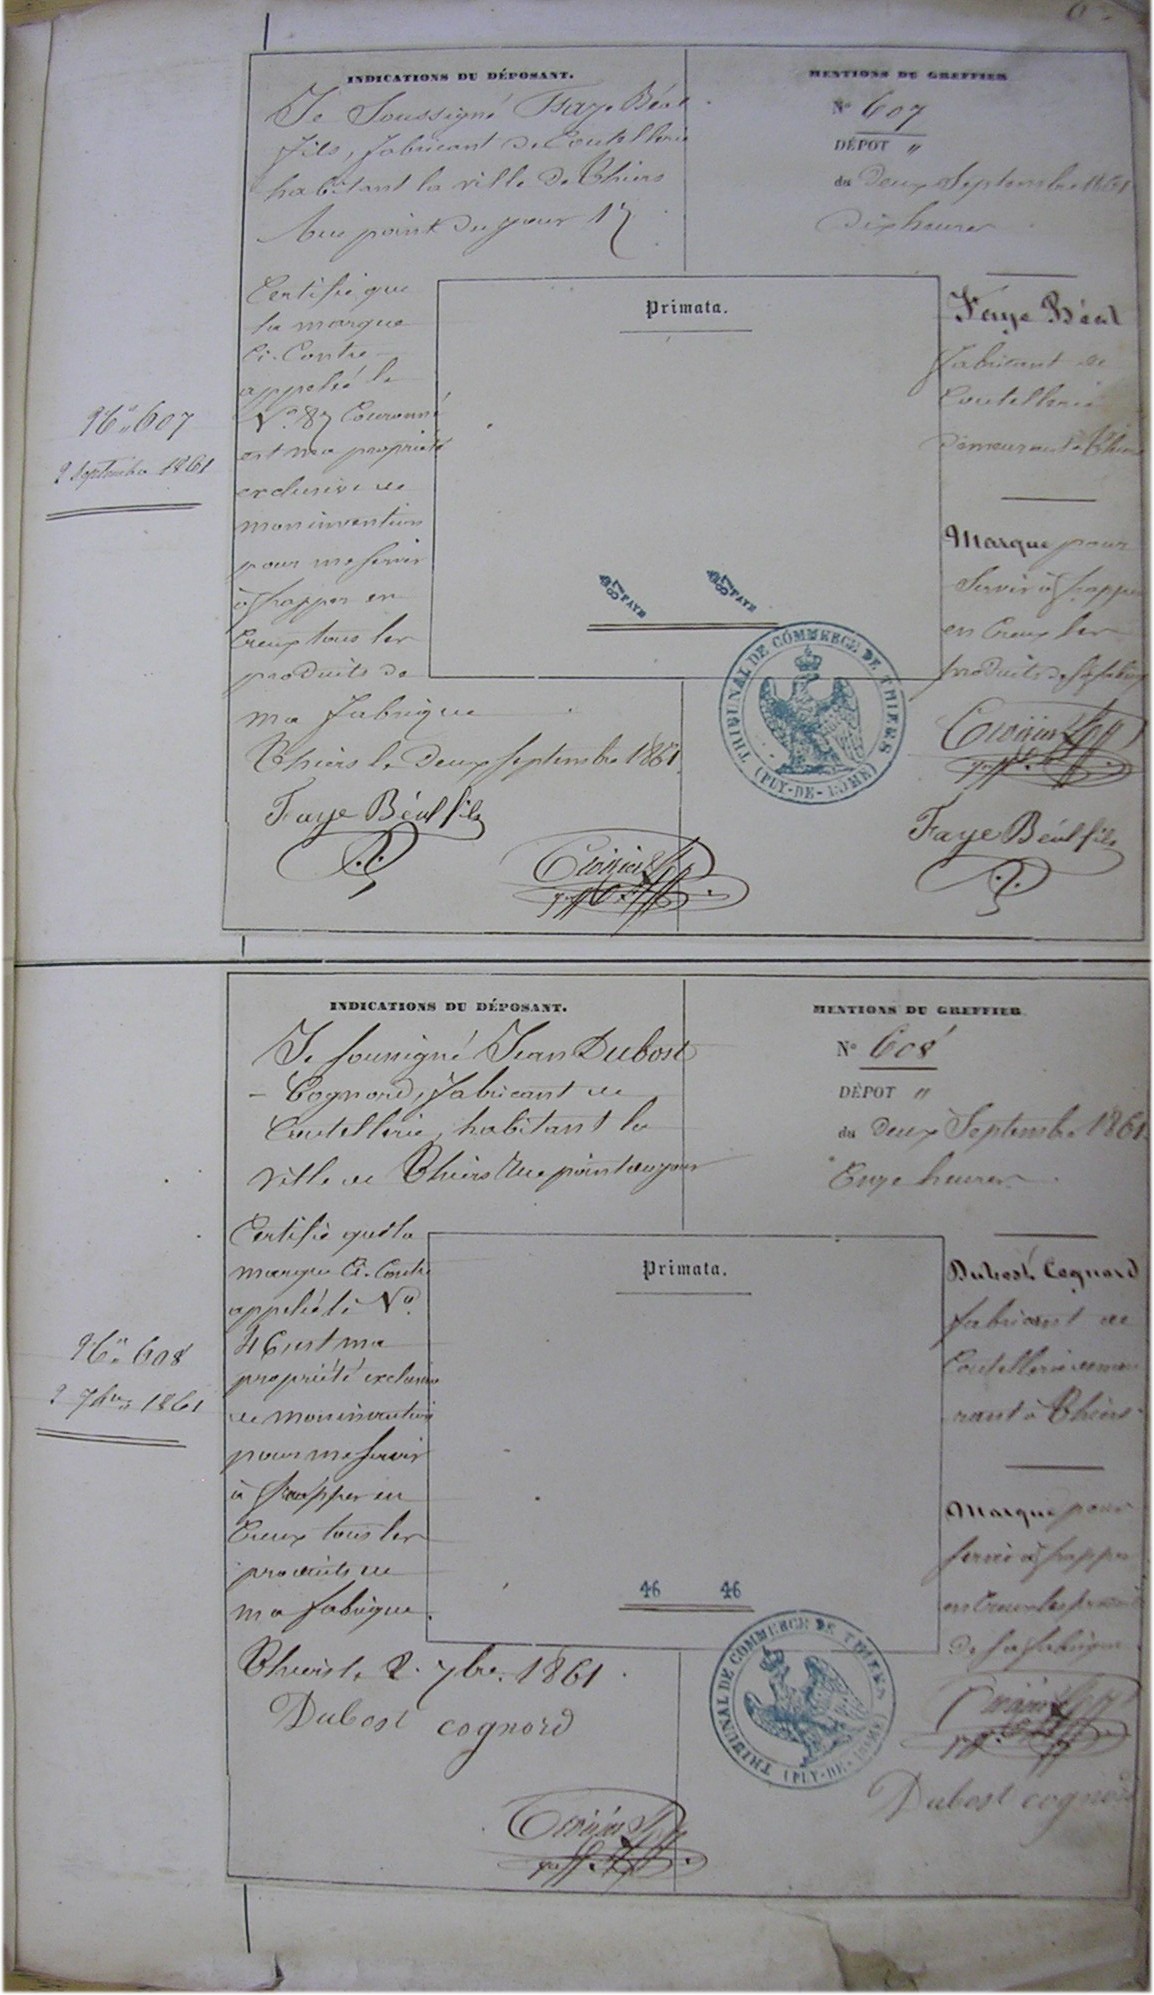 INDICATIONS DU DÉPOSANT.
Je Soussigné Faye Béal
fils, fabricant de Coutellerie
habitant la ville de Thiers
Rue point du jour 17
Certifie que
la marque
Ci-Contre
appelée le
N.° 87 Couronné
est ma propriété
exclusive de
mon invention
pour me servir
à frapper en
Creux tous les
produits de
ma fabrique
Thiers le deux Septembre 1861
Faye Béal fils
MENTIONS DU GREFFIER
N° 607
DÉPOT "
du deux Septembre 1861
dix heures
Faye Béal
fabricant de
Coutellerie
demeurant à Thiers
Marque pour
Servir à frapper
en Creux les
produits de sa fabrique
Faye Béal fils
N° 607
2 Septembre 1861
Primata.
87 FAYE 87 FAYE
TRIBUNAL DE COMMERCE DE THIERS
(PUY-DE-DÔME)
INDICATIONS DU DÉPOSANT.
Je soussigné Jean Dubost
- Cognord, fabricant de
Coutellerie, habitant la
ville de Thiers Rue point du jour
Certifie que la
marque Ci-Contre
appelée le N°
46 est ma
propriété exclusive
de mon invention
pour me servir
à frapper en
Creux tous les
produits de
ma fabrique.
Thiers le 2. 7bre. 1861.
Dubost cognord
MENTIONS DU GREFFIER
N° 608
DÉPOT "
du deux Septembre 1861
Onze heures
Dubost Cognord
fabricant de
Coutellerie demeu
rant à Thiers
Marque pour
servir à frapper
en Creux les produits
de sa fabrique
Dubost cognord
N° 608
2 7bre 1861
Primata.
46 46
TRIBUNAL DE COMMERCE DE THIERS
(PUY-DE-DÔME)